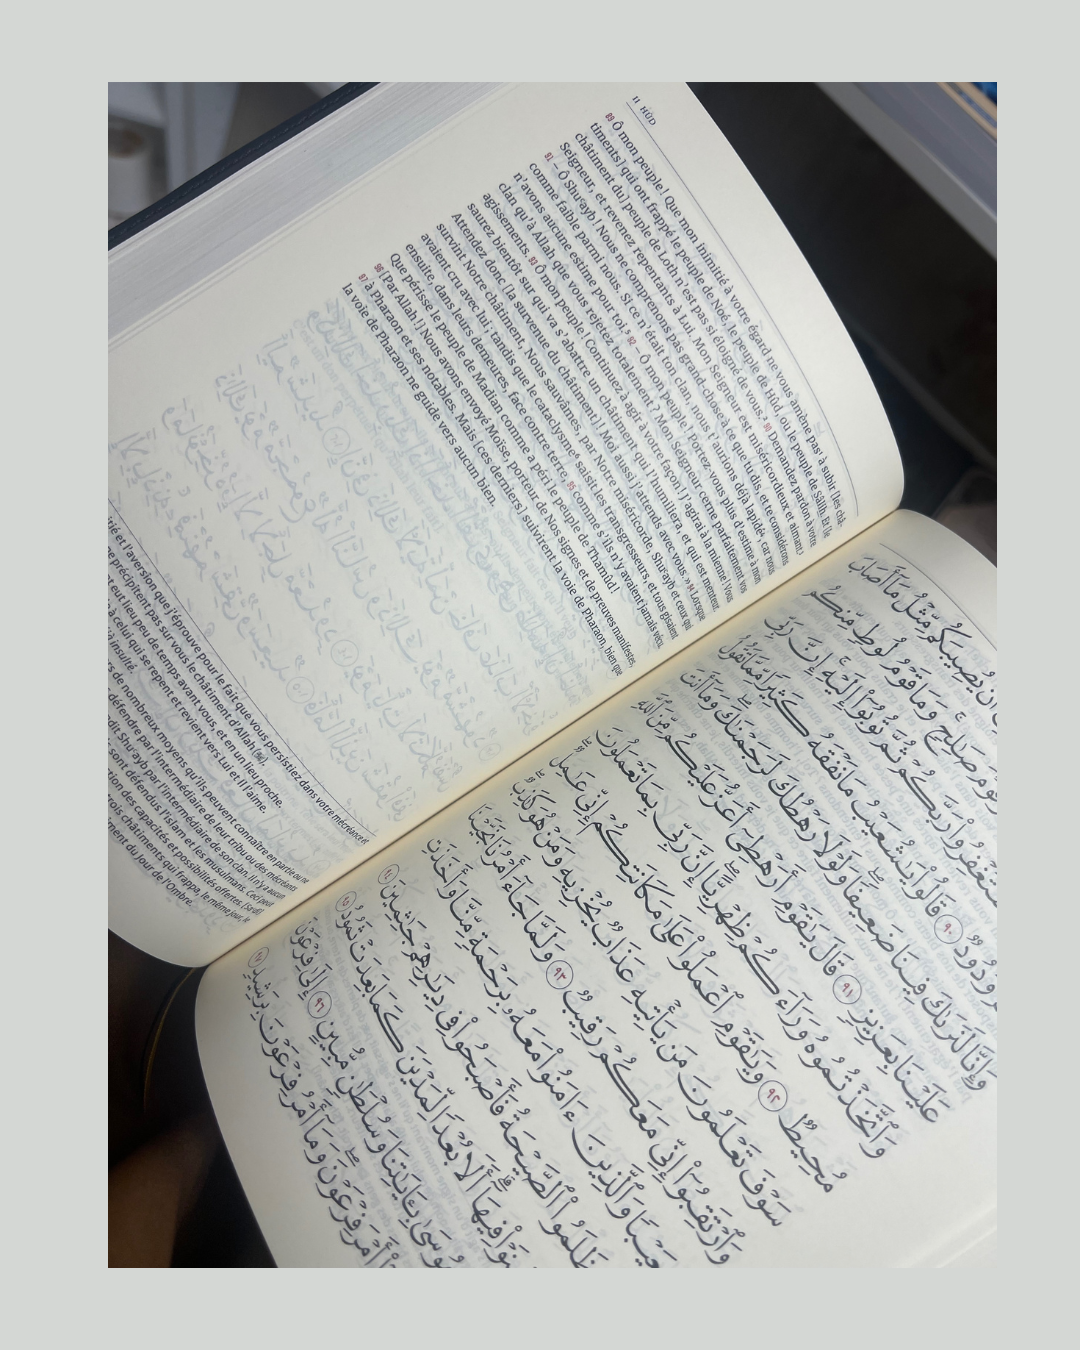 11 HÛD
89 Ô mon peuple ! Que mon inimitié à votre égard ne vous amène pas¹ à subir [les châ-
timents] qui ont frappé le peuple de Noé, le peuple de Hûd, ou le peuple de Sâlih. Et [le
châtiment du] peuple de Loth n'est pas si éloigné de vous.² 90 Demandez pardon à votre
Seigneur, et revenez repentants à Lui. Mon Seigneur est miséricordieux et aimant.³
91 – Ô Shu'ayb ! Nous ne comprenons pas grand-chose à ce que tu dis, et te considérons
comme faible parmi nous. Si ce n'était ton clan, nous t'aurions déjà lapidé⁴, car nous
n'avons aucune estime pour toi.⁵ 92 – Ô mon peuple ! Portez-vous plus d'estime à mon
clan qu'à Allah que vous rejetez totalement ? Mon Seigneur cerne parfaitement vos
agissements. 93 Ô mon peuple ! Continuez à agir à votre façon! J'agirai à la mienne ! Vous
saurez bientôt sur qui va s'abattre un châtiment qui l'humiliera, et qui est menteur.
Attendez donc [la survenue du châtiment] ! Moi aussi j'attends avec vous. » 94 Lorsque
survint Notre châtiment, Nous sauvâmes, par Notre miséricorde, Shu'ayb et ceux qui
avaient cru avec lui, tandis que le cataclysme⁶ saisit les transgresseurs, et tous gisaient
ensuite, dans leurs demeures, face contre terre, 95 comme s'ils n'y avaient jamais vécu.
Que périsse le peuple de Madian comme a péri le peuple de Thamûd !
96 [Par Allah !] Nous avons envoyé Moïse, porteur de Nos signes et de preuves manifestes,
97 à Pharaon et ses notables. Mais [ces derniers] suivirent la voie de Pharaon, bien que
la voie de Pharaon ne guide vers aucun bien.
et l'aversion que j'éprouve pour le fait que vous persistiez dans votre mécréance et
précipitent pas sur vous le châtiment d'Allah (ﷻ).
eut lieu peu de temps avant vous, et en un lieu proche.
à celui qui se repent et revient vers Lui et Il l'aime.
insulté.
de nombreux moyens qu'ils peuvent connaître en partie ou ne
défendre par l'intermédiaire de leur tribu ou des mécréants
Shu'ayb par l'intermédiaire de son clan. Il n'y a aucun
sont défendus l'islam et les musulmans. Ceci peut
des capacités et possibilités offertes. [Sa'dî]
châtiments qui frappa, le même jour, le
du Jour de l'Ombre.
أَن يُصِيبَكُم مِّثْلُ مَا أَصَابَ
قَوْمَ صَالِحٍ ۚ وَمَا قَوْمُ لُوطٍ مِّنكُم
رَبَّكُمْ ثُمَّ تُوبُوا إِلَيْهِ ۚ إِنَّ رَبِّي
وَدُودٌ ٩٠ قَالُوا يَٰشُعَيْبُ مَا نَفْقَهُ كَثِيرًا مِّمَّا تَقُولُ
وَإِنَّا لَنَرَىٰكَ فِينَا ضَعِيفًا ۖ وَلَوْلَا رَهْطُكَ لَرَجَمْنَٰكَ ۖ وَمَا أَنتَ
عَلَيْنَا بِعَزِيزٍ ٩١ قَالَ يَٰقَوْمِ أَرَهْطِي أَعَزُّ عَلَيْكُم مِّنَ ٱللَّهِ
وَٱتَّخَذْتُمُوهُ وَرَاءَكُمْ ظِهْرِيًّا ۖ إِنَّ رَبِّي بِمَا تَعْمَلُونَ
مُحِيطٌ ٩٢ وَيَٰقَوْمِ ٱعْمَلُوا عَلَىٰ مَكَانَتِكُمْ إِنِّي عَٰمِلٌ ۖ
سَوْفَ تَعْلَمُونَ مَن يَأْتِيهِ عَذَابٌ يُخْزِيهِ وَمَنْ هُوَ كَٰذِبٌ ۖ
وَٱرْتَقِبُوا إِنِّي مَعَكُمْ رَقِيبٌ ٩٣ وَلَمَّا جَاءَ أَمْرُنَا نَجَّيْنَا
شُعَيْبًا وَٱلَّذِينَ ءَامَنُوا مَعَهُ بِرَحْمَةٍ مِّنَّا وَأَخَذَتِ
ظَلَمُوا ٱلصَّيْحَةُ فَأَصْبَحُوا فِي دِيَٰرِهِمْ جَٰثِمِينَ ٩٤
فِيهَا ۗ أَلَا بُعْدًا لِّمَدْيَنَ كَمَا بَعِدَتْ ثَمُودُ ٩٥
مُوسَىٰ بِـَٔايَٰتِنَا وَسُلْطَٰنٍ مُّبِينٍ ٩٦ إِلَىٰ فِرْعَوْنَ
أَمْرَ فِرْعَوْنَ ۖ وَمَا أَمْرُ فِرْعَوْنَ بِرَشِيدٍ ٩٧